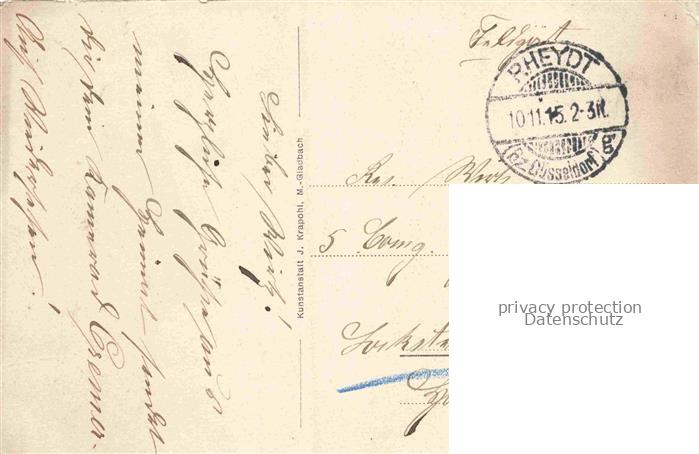 Feldpost
RHEYDT
10.11.15. 2-3N.
(Bz. Düsseldorf) g
Kunstanstalt J. Krapohl, M.-Gladbach
Lieber Willy!
Herzliche Grüße aus
meiner Heimat sendet
dir dein Kamerad Cremer.
Auf Wiedersehen!
Res.
5 Comp.
Lockste
privacy protection
Datenschutz